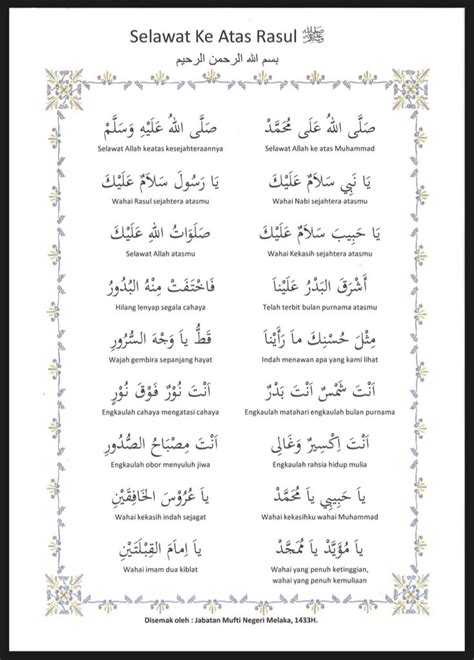 Selawat Ke Atas Rasul ﷺ
بسم الله الرحمن الرحيم
صَلَّى اللهُ عَلَى مُحَمَّدْ صَلَّى اللهُ عَلَيْهِ وَسَلَّمْ
Selawat Allah ke atas Muhammad Selawat Allah keatas kesejahteraannya
يَا نَبِي سَلاَمٌ عَلَيْكَ يَا رَسُولَ سَلاَمٌ عَلَيْكَ
Wahai Nabi sejahtera atasmu Wahai Rasul sejahtera atasmu
يَا حَبِيبَ سَلاَمٌ عَلَيْكَ صَلَوَاتُ اللهِ عَلَيْكَ
Wahai Kekasih sejahtera atasmu Selawat Allah atasmu
أَشْرَقَ الْبَدْرُ عَلَيْنَا فَاخْتَفَتْ مِنْهُ الْبُدُورُ
Telah terbit bulan purnama atasmu Hilang lenyap segala cahaya
مِثْلَ حُسْنِكَ مَا رَأَيْنَا قَطُّ ياَ وَجْهَ السُّرُورِ
Indah menawan apa yang kami lihat Wajah gembira sepanjang hayat
اَنْتَ شَمْسٌ اَنْتَ بَدْرٌ اَنْتَ نُوْرٌ فَوْقَ نُوْرٍ
Engkaulah matahari engkaulah bulan purnama Engkaulah cahaya mengatasi cahaya
اَنْتَ اِكْسِيرٌ وَغَالِى اَنْتَ مِصْبَاحُ الصُّدُورِ
Engkaulah rahsia hidup mulia Engkaulah obor menyuluh jiwa
ياَ حَبِيبِي ياَ مُحَمَّدْ ياَ عَرُوْسَ الْخَافِقَيْنِ
Wahai kekasihku wahai Muhammad Wahai kekasih indah sejagat
ياَ مُؤَيَّدْ ياَ مُمَجَّدْ ياَ اِمَامَ الْقِبْلَتَيْنِ
Wahai yang penuh ketinggian, Wahai imam dua kiblat
wahai yang penuh kemuliaan
Disemak oleh : Jabatan Mufti Negeri Melaka, 1433H.